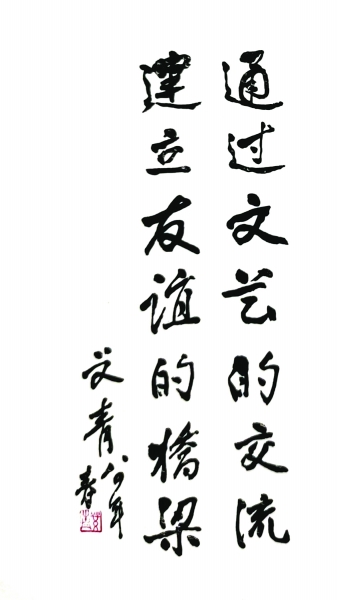 通过文艺的交流
建立友谊的橋梁
艾青八〇年
春